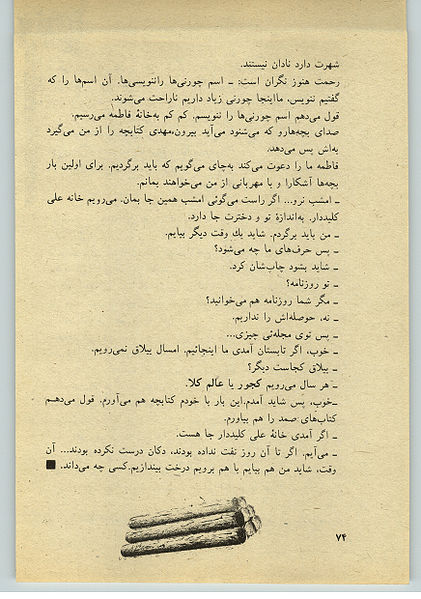 شهرت دارد نادان نیستند.
رحمت هنوز نگران است: ـ اسم چورنی‌ها راننویسی‌ها. آن اسم‌ها را که
گفتیم ننویس، مااینجا چورنی زیاد داریم ناراحت می‌شوند.
قول می‌دهم اسم چورنی‌ها را ننویسم. کم کم به‌خانهٔ فاطمه می‌رسیم.
صدای بچه‌هارو که می‌شنود می‌آید بیرون،مهدی کتابچه را از من می‌گیرد
به‌اش پس می‌دهد.
فاطمه ما را دعوت می‌کند به‌چای می‌گویم که باید برگردیم. برای اولین بار
بچه‌ها آشکارا و با مهربانی از من می‌خواهند بمانم.
ـ امشب نرو... اگر راست می‌گوئی امشب همین جا بمان. می‌رویم خانه علی
کلیددار. به‌اندازهٔ تو و دخترت جا دارد.
ـ من باید برگردم. شاید یك وقت دیگر بیایم.
ـ پس حرف‌های ما چه می‌شود؟
ـ شاید بشود چاپ‌شان کرد.
ـ تو روزنامه؟
ـ مگر شما روزنامه هم می‌خوانید؟
ـ نه، حوصله‌اش را نداریم.
ـ پس توی مجله‌ئی چیزی...
ـ خوب، اگر تابستان آمدی ما اینجائیم. امسال ییلاق نمی‌رویم.
ـ ییلاق کجاست دیگر؟
ـ هر سال می‌رویم کجور یا عالم کلا.
ـخوب، پس شاید آمدم.این بار با خودم کتابچه هم می‌آورم. قول می‌دهـم
کتاب‌های صمد را هم بیاورم.
ـ اگر آمدی خانهٔ علی کلیددار جا هست.
ـ می‌آیم. اگر تا آن روز نفت نداده بودند، دکان درست نکرده بودند... آن
وقت، شاید من هم بیایم با هم برویم درخت بیندازیم.کسی چه می‌داند. ■
۷۴